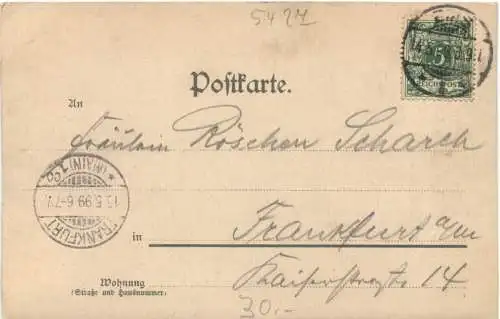 5427
Postkarte.
An
Fräulein Röschen Scharch
in Frankfurt a/m
Kaiserstraße 14
Wohnung
(Straße und Hausnummer)
30.-
FRANKFURT
(MAIN) 1
15.5.99 6-7V
5
REICHSPOST